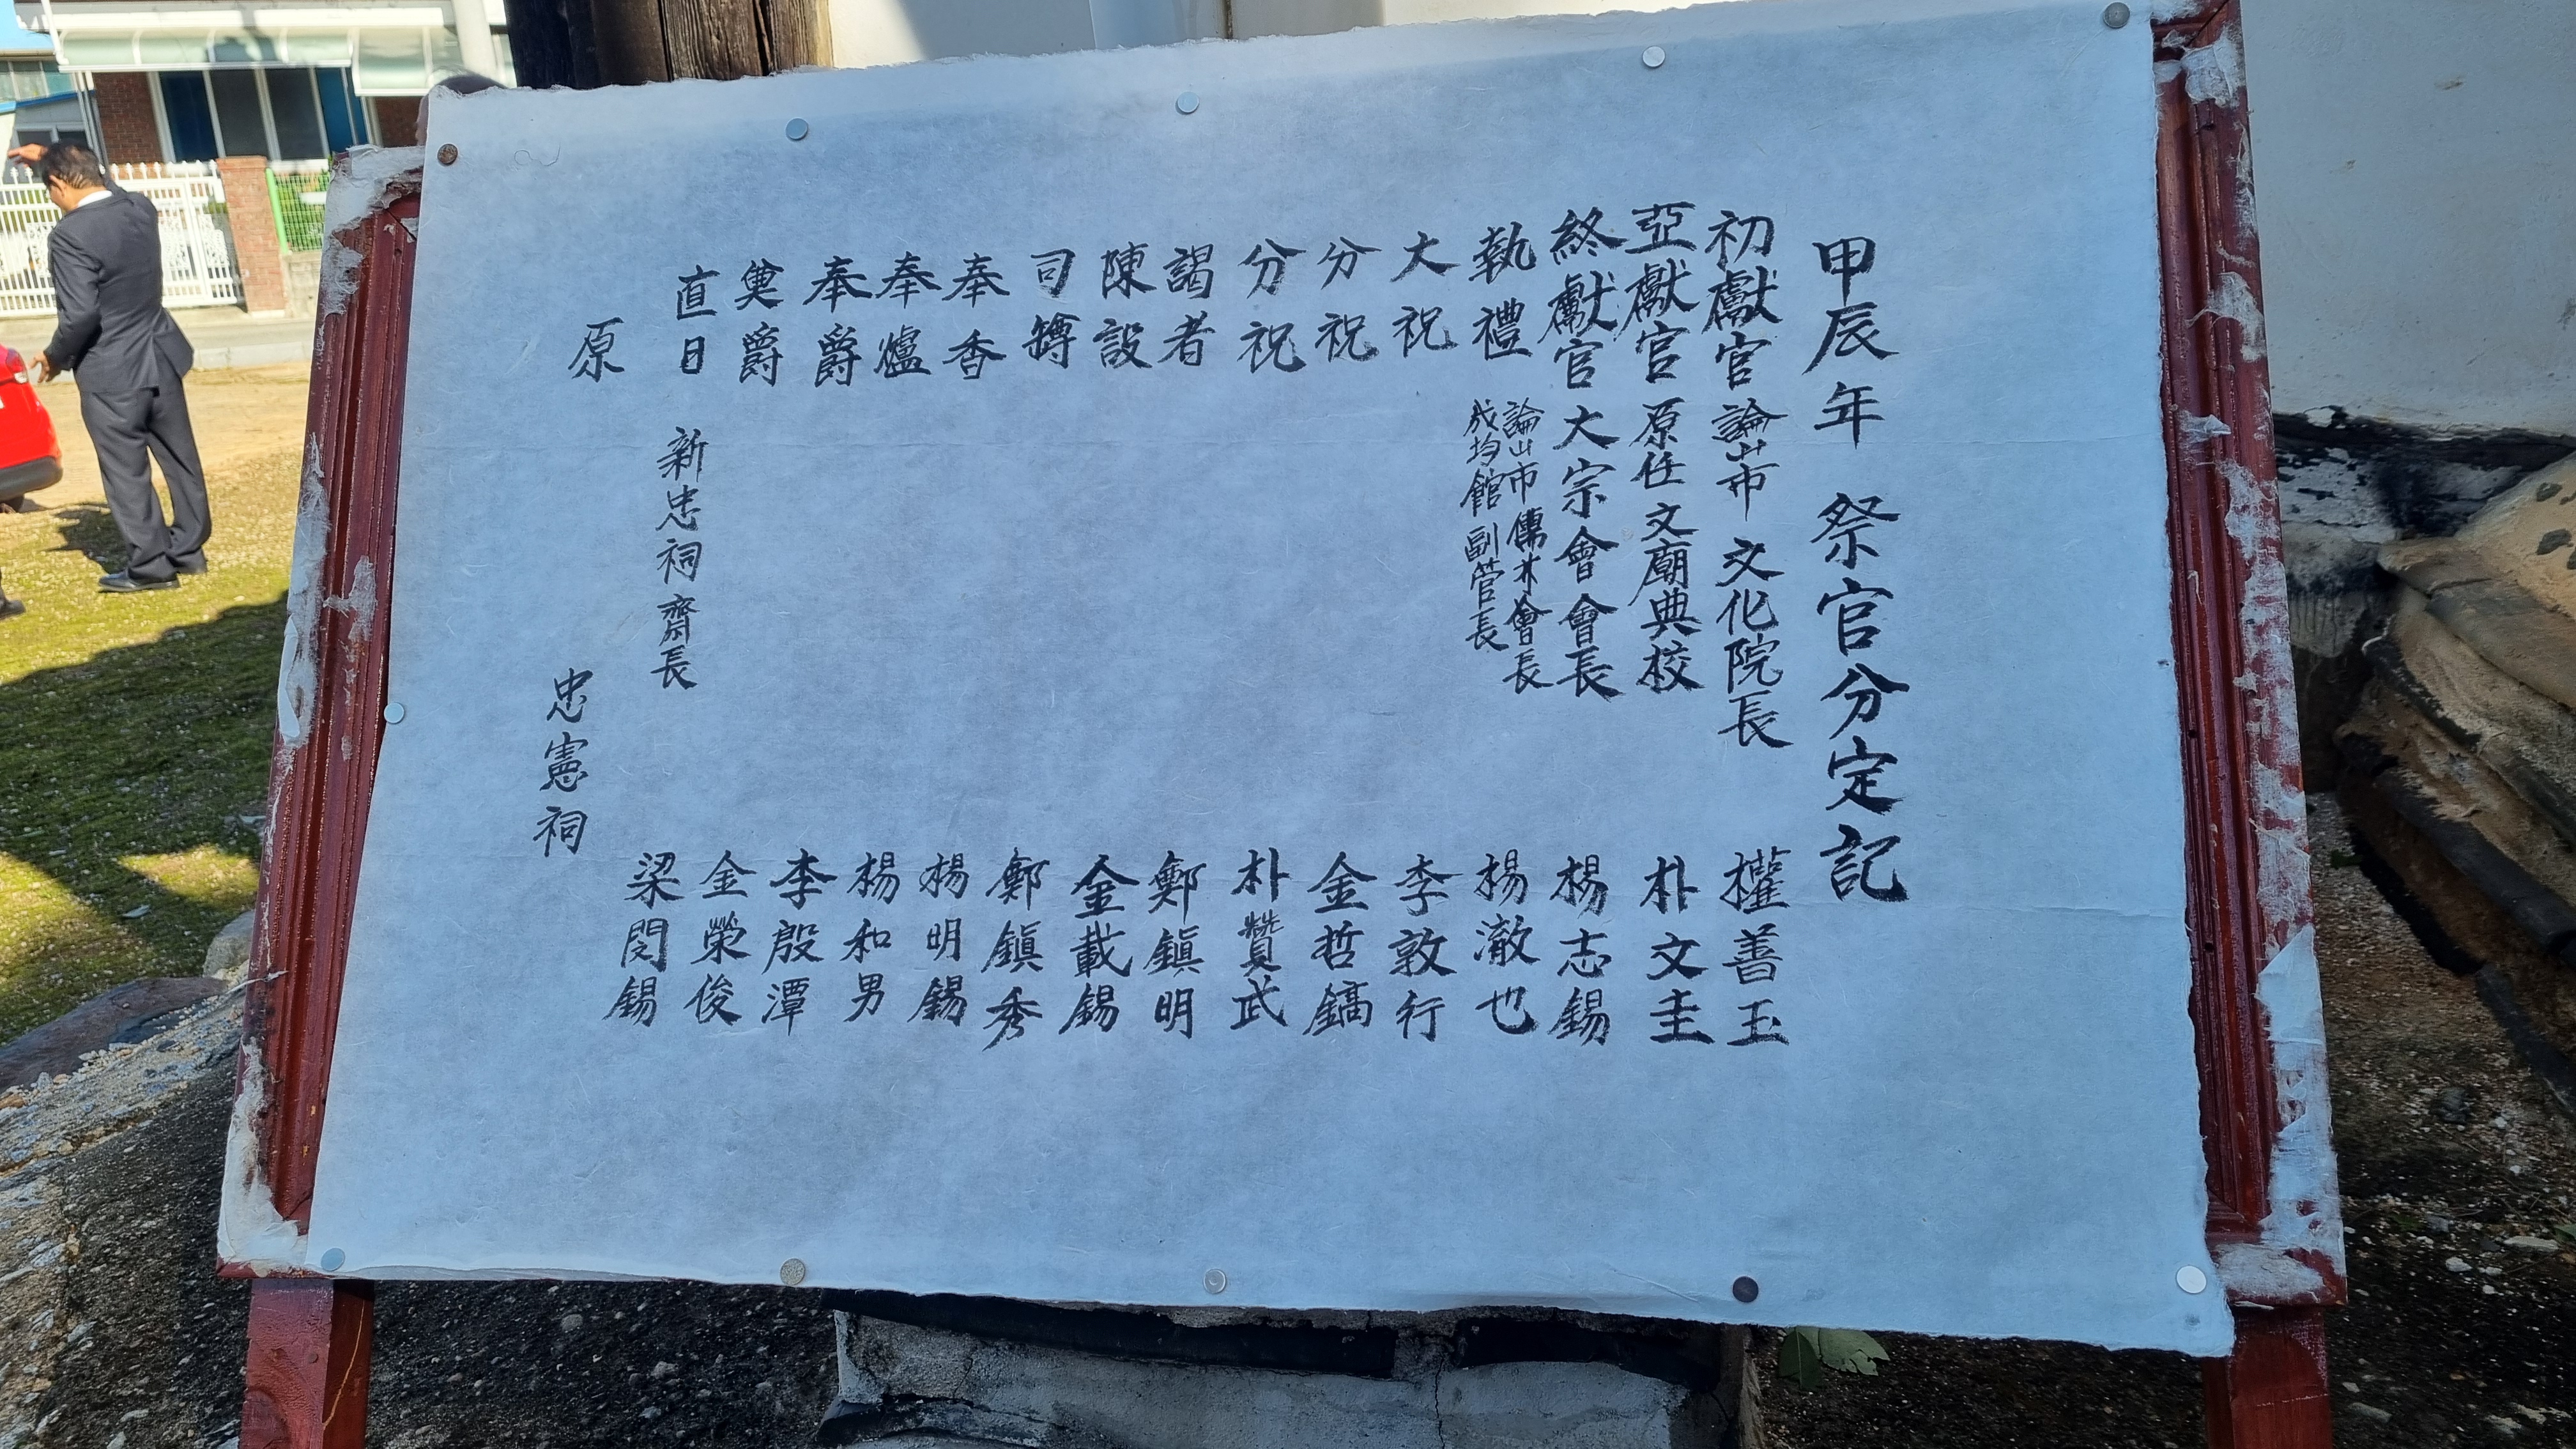 甲辰年 祭官分定記
初獻官 論山市 文化院長 權善玉
亞獻官 原任 文廟典校 朴文圭
終獻官 大宗會會長 楊志錫
執禮 論山市 儒林會長 成均館 副管長 楊澈也
大祝 李敦行
分祝 金哲鎬
分祝 朴贊武
謁者 鄭鎭明
陳設 金載錫
司罇 鄭鎭秀
奉香 楊明錫
奉爐 楊和男
奉爵 李殷潭
奠爵 金榮俊
直日 新忠祠 齋長 梁閔錫
原 忠憲祠